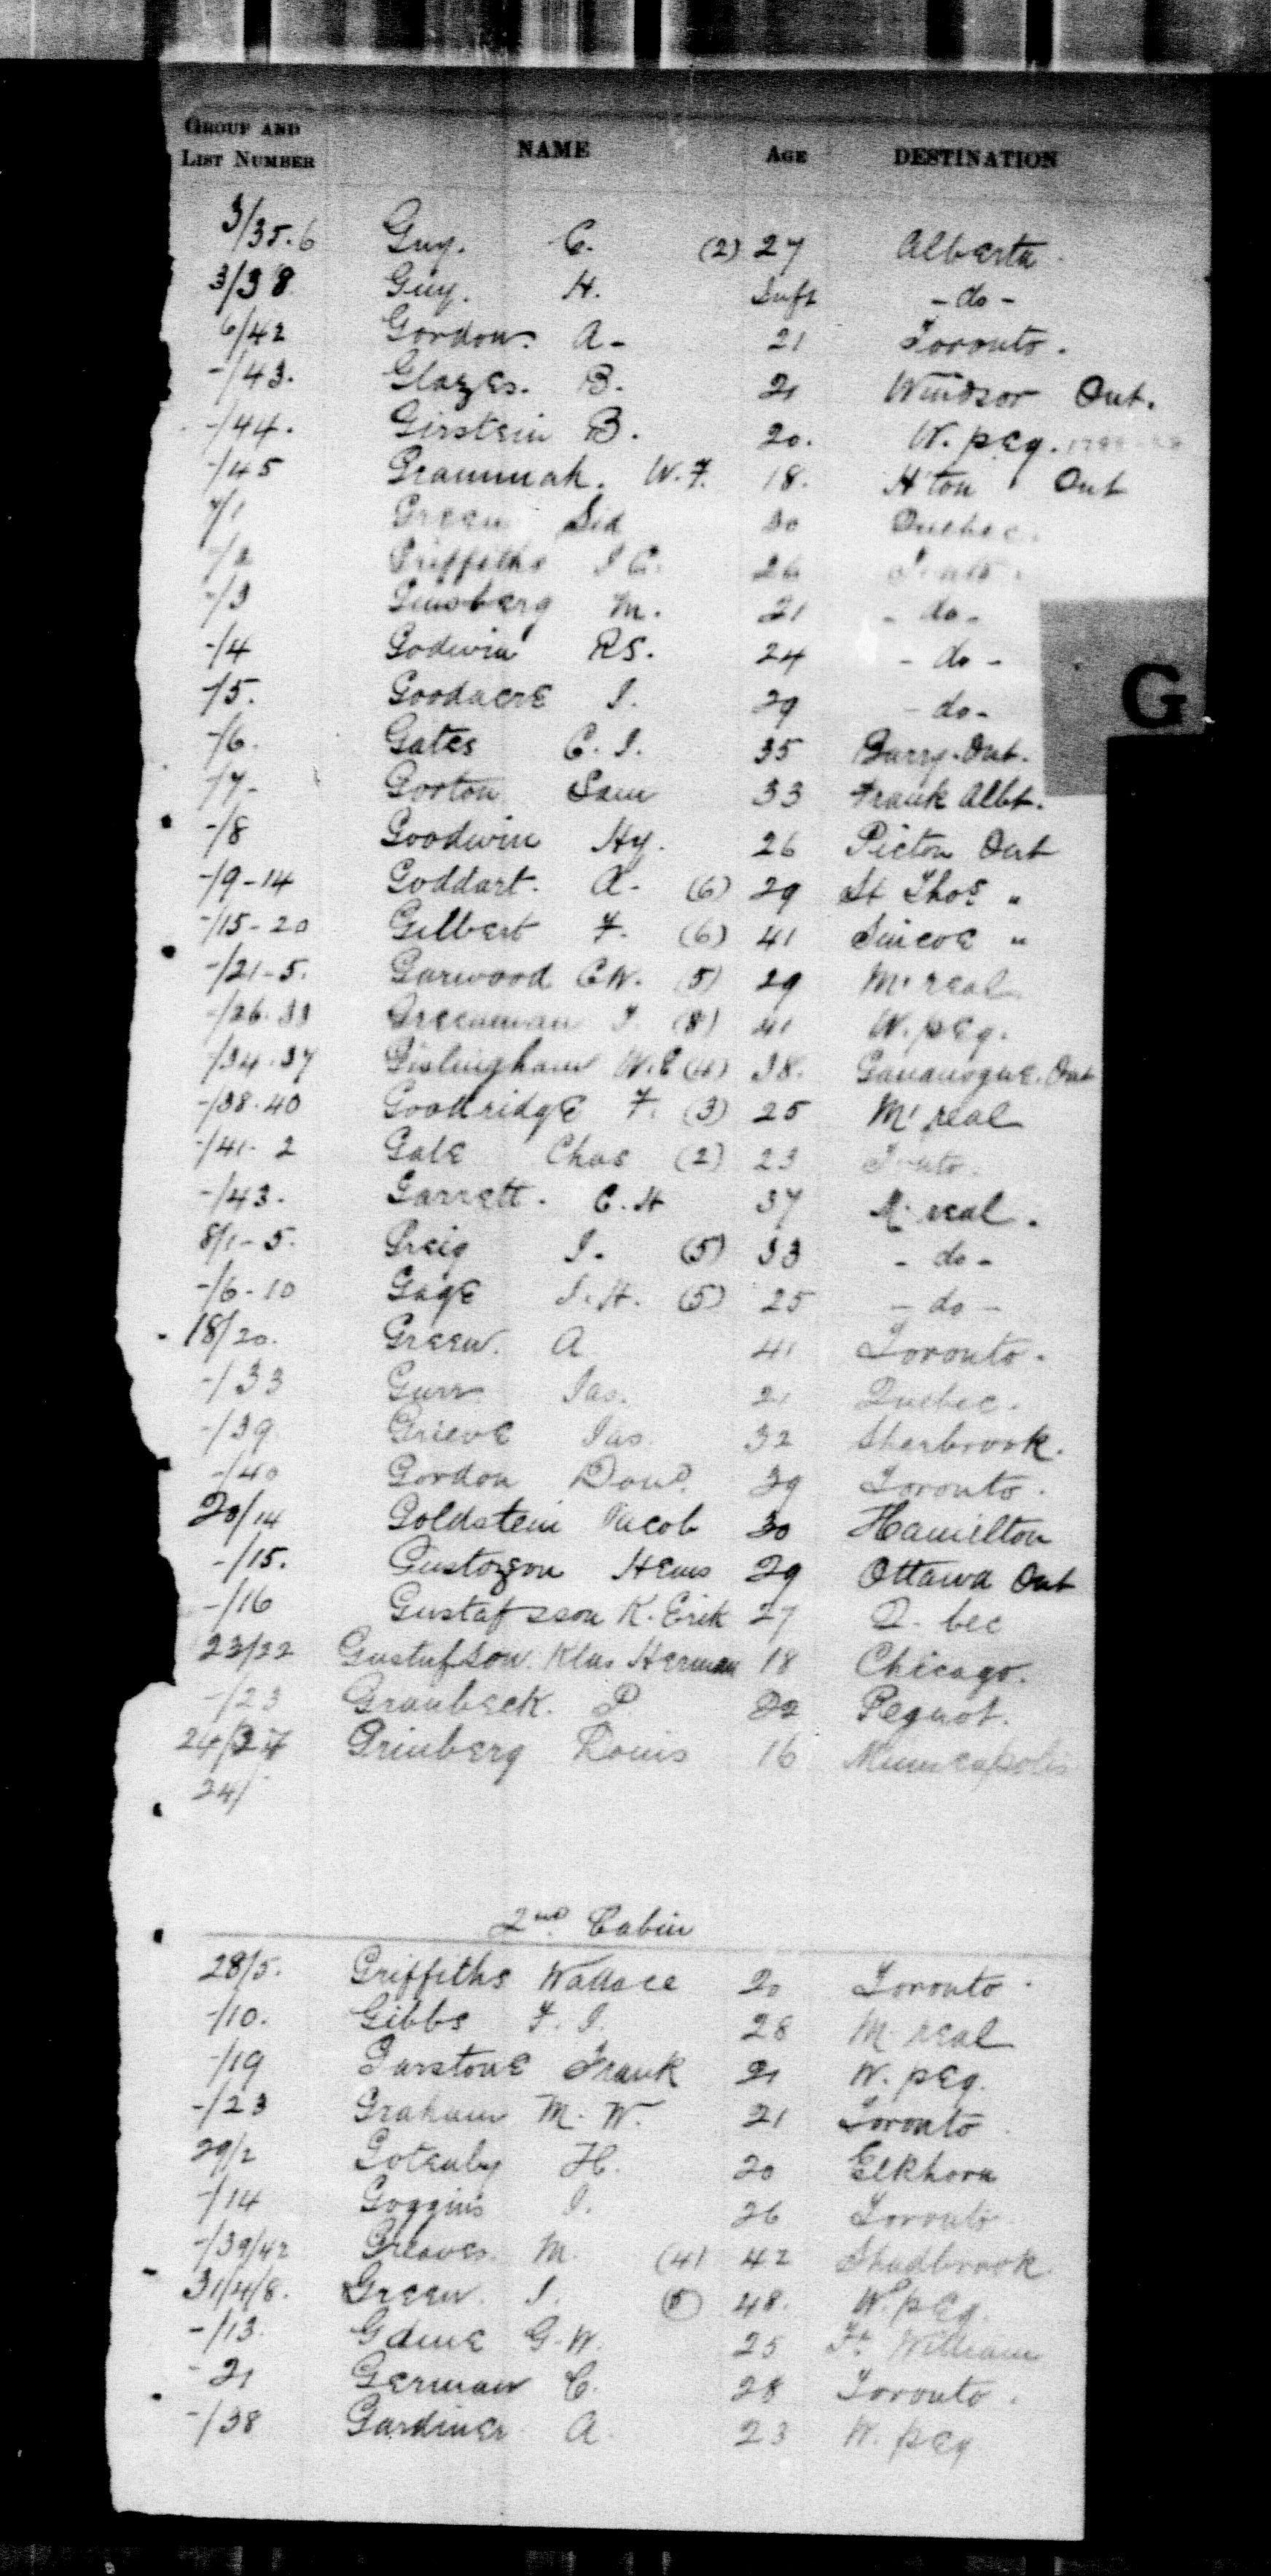 GROUP AND LIST NUMBER NAME AGE DESTINATION
3/35.6 Guy. C. (2) 27 Alberta.
3/38 Guy. H. Inft - do -
6/42 Gordon. A- 21 Toronto.
-/43. Glazes. B. 21 Windsor Ont.
-/44. Girstein B. 20. W. peg.
-/45 Grammah. W.F. 18. H'ton Ont
7/1 Green Sid 30 Quebec.
-/2 Griffiths I C. 26
-/3 Ginsberg M. 21 - do -
-/4 Godwin RS. 24 - do -
-/5. Goodacre I. 29 - do -
-/6. Gates C. I. 35 Barry. Ont.
-/7- Gorton Sam 33 Frank Albt.
-/8 Goodwin Hy. 26 Picton Ont
-/9-14 Goddart. A- (6) 29 St Thos "
-/15-20 Gilbert F. (6) 41 Simcoe "
-/21-5. Garwood C.W. (5) 29 M'real
-/26.33 Greenman I. (8) 41 W. peg.
-/34.37 Gislingham W.E (4) 38. Gananoque. Ont
-/38.40 Goodridge F. (3) 25 M'real
-/41-2 Gale Chas (2) 23
-/43. Garrett. C.H 37 M. real.
8/1-5. Greig I. (5) 33 - do -
-/6-10 Gage I.H. (5) 25 - do -
18/20. Green. A 41 Toronto.
-/33 Gurr Jas. 21 Quebec.
-/39 Grieve Jas. 32 Sherbrook.
-/40 Gordon Dond. 29 Toronto.
20/14 Goldstein Jacob 30 Hamilton
-/15. Gustozson Hems 29 Ottawa Ont
-/16 Gustafsson K. Erik 27 Q. bec
23/22 Gustafson. Klas Herman 18 Chicago.
-/23 Granbeck. P. 22 Pequot.
24/27 Grinberg Louis 16 Minneapolis
24/
2nd Cabin
28/5. Griffiths Wallace 20 Toronto.
-/10. Gibbs F. I. 28 M. real
-/19 Garstone Frank 21 W. peg.
-/23 Graham M. W. 21 Toronto.
29/2 Gotenby H. 20 Elkhorn
-/14 Goggins I. 26 Toronto
-/39/42 Greaves. M. (4) 42 Shadbrook.
31/4/8. Green. I. (5) 48. W. peg.
-/13. G.W. 25 Ft. William
- 21 German C. 28 Toronto.
-/38 Gardiner A. 23 W. peg
G